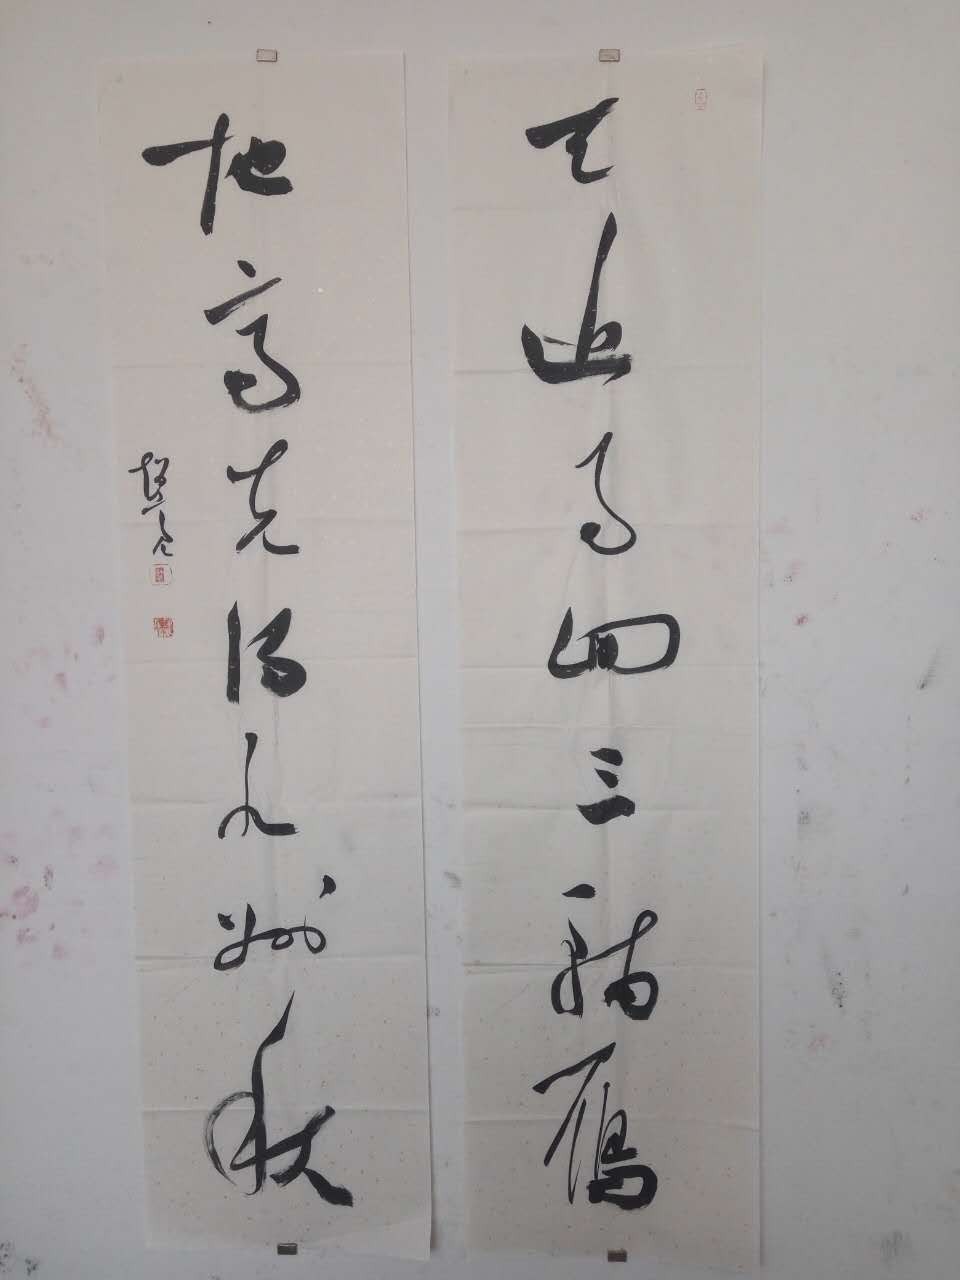 天近易回三辅雁
地高先得九州秋